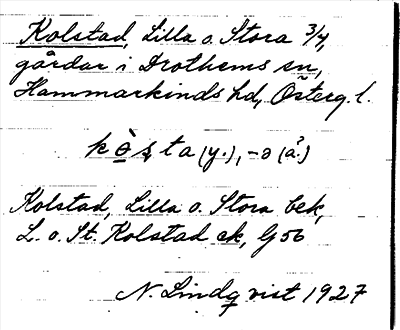 Kolstad, Lilla o. Stora 3/4,
gårdar i Drothems sn,
Hammarkinds hd, Österg. l.
kòsta (y.), -ə (ä.)
Kolstad, Lilla o. Stora bek,
L. o. St. Kolstad ek, G 56
N. Lindqvist 1927